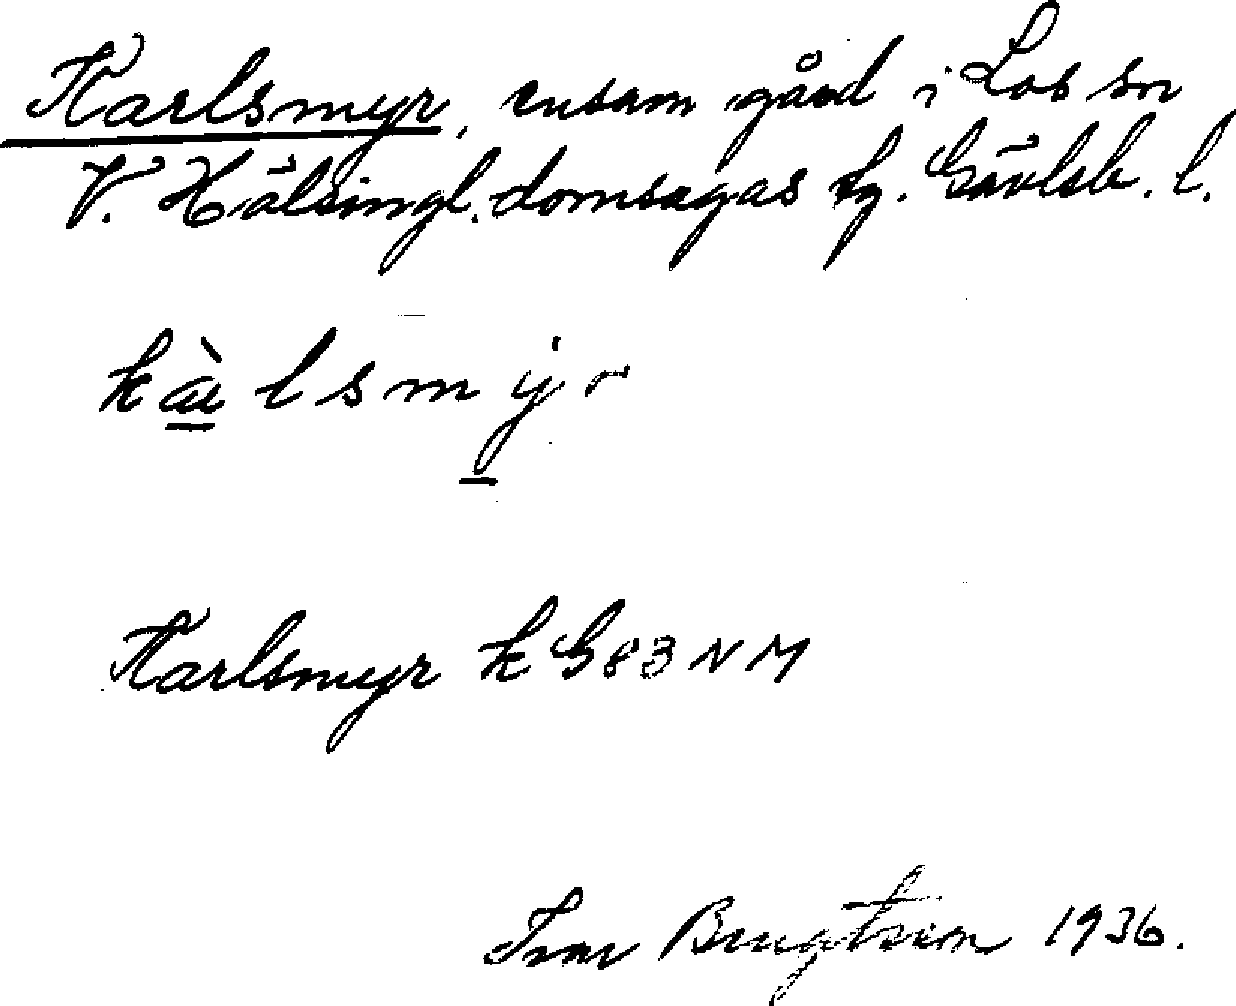 Karlsmyr, ensam gård i Los sn
V. Hälsingl. domsagas tg. Gävleb. l.
kæ̀lsmy̍r
Karlsmyr k G83NM
Ivar Bengtsson 1936.